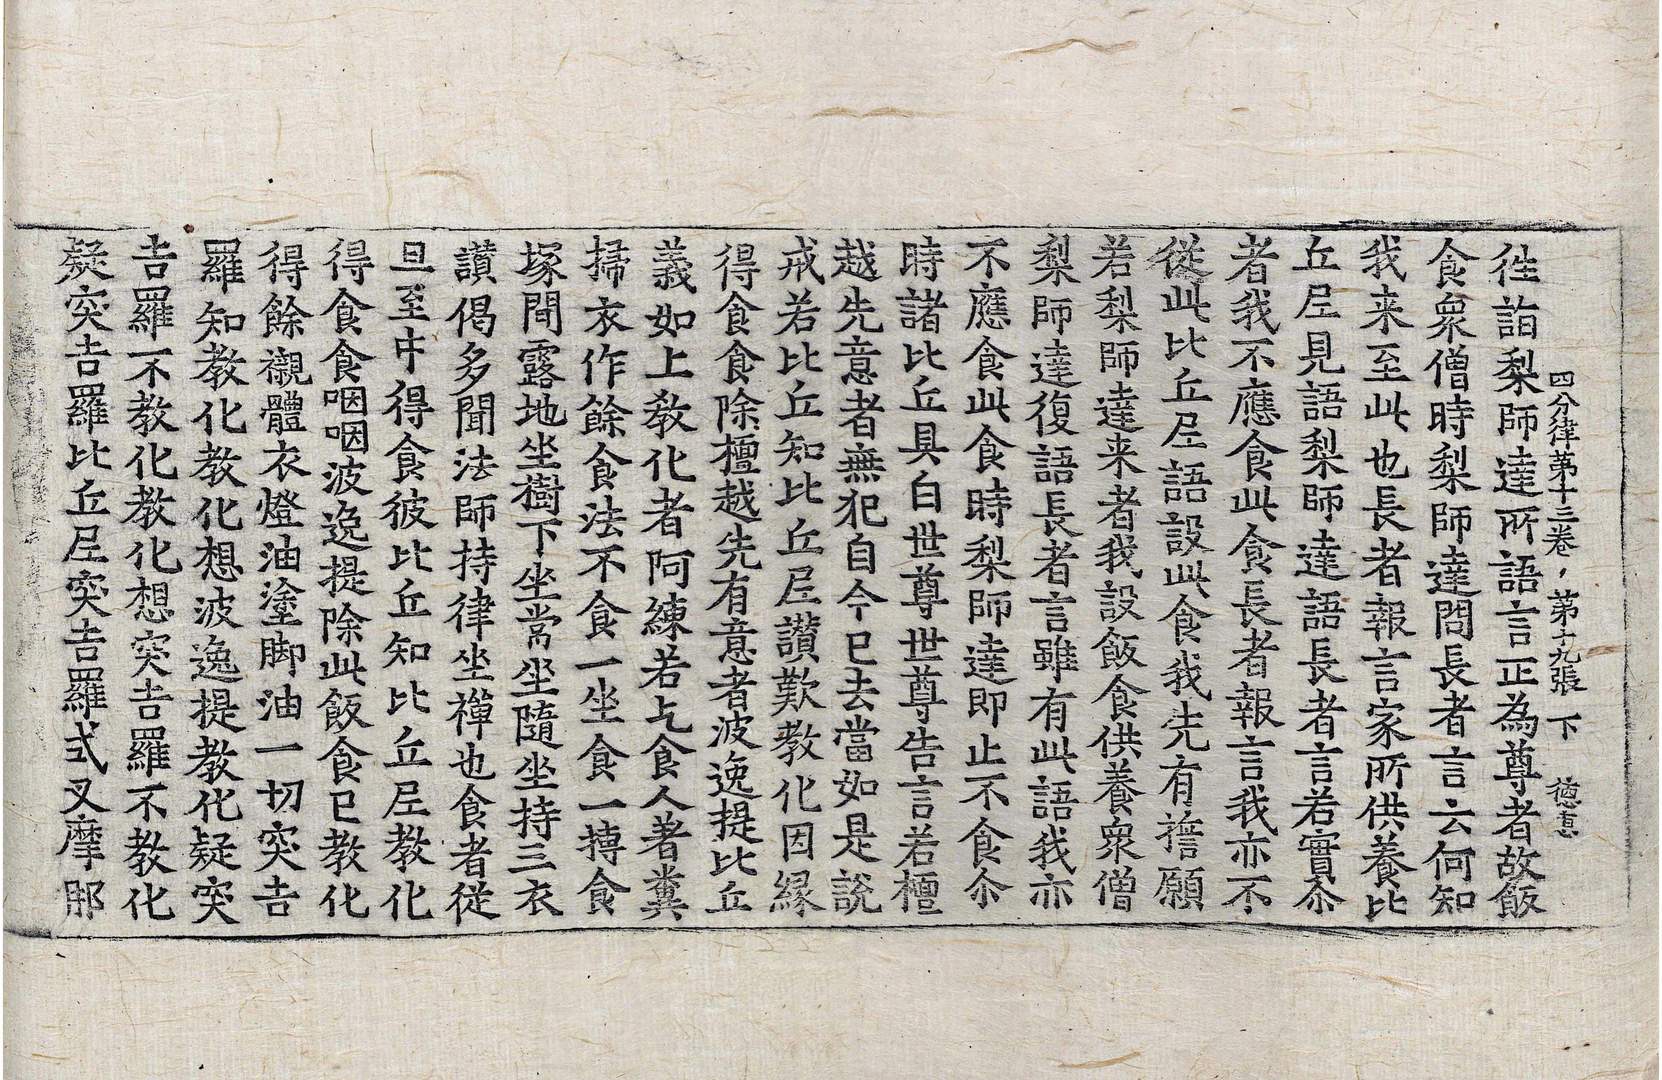 四分律第十三卷,第十九張 下
往詣梨師達所語言正為尊者故飯
食衆僧時梨師達問長者言云何知
我来至此也長者報言家所供養比
丘尼見語梨師達語長者言若實尒
者我不應食此食長者報言我亦不
從此比丘尼語設此食我先有誓願
若梨師達来者我設飯食供養衆僧
梨師達復語長者言雖有此語我亦
不應食此食時梨師達即止不食尒
時諸比丘具白世尊世尊告言若檀
越先意者無犯自今已去當如是說
戒若比丘知比丘尼讃歎教化因縁
得食食除檀越先有意者波逸提比丘
義如上教化者阿練若乞食人著糞
掃衣作餘食法不食一坐食一摶食
塚間露地坐樹下坐常坐隨坐持三衣
讃偈多聞法師持律坐禪也食者從
旦至中得食彼比丘知比丘尼教化
得食食咽咽波逸提除此飯食已教化
得餘襯體衣燈油塗脚油一切突吉
羅知教化教化想波逸提教化疑突
吉羅不教化教化想突吉羅不教化
疑突吉羅比丘尼突吉羅式叉摩那